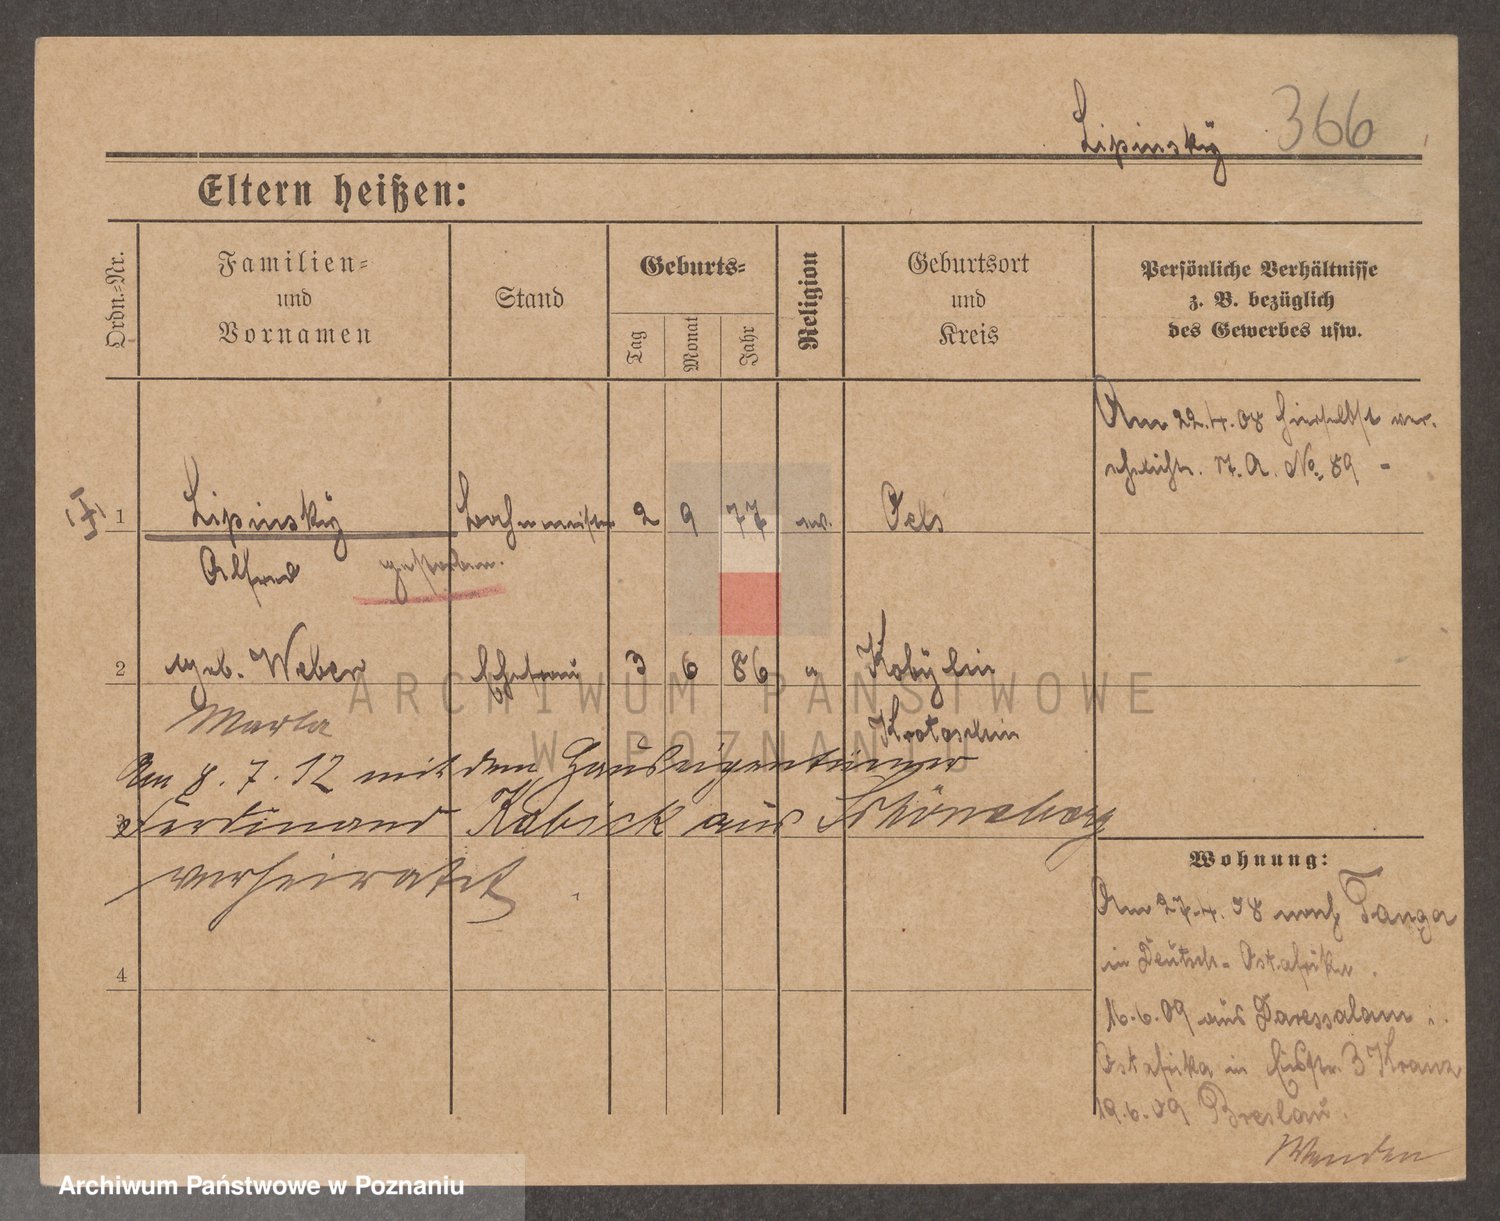 Lipinskÿ 366
Eltern heißen:
Ordn.-Nr.
Familien-
und
Vornamen
Stand
Geburts-
Tag
Monat
Jahr
Religion
Geburtsort
und
Kreis
Persönliche Verhältnisse
z. B. bezüglich
des Gewerbes usw.
Am 22.4.08 hierselbst ver-
ehelicht. No. 89 -
1 Lipinskÿ 2 9 77 ev. Oels
Alfred gestorben.
2 geb. Weber Ehefrau 3 6 86 " Kobÿlin
Marta Krotoschin
Am 8.7.12 mit dem Hauseigentümer
3 Ferdinand Kabick aus Schöneberg
verheiratet
Wohnung:
Am 27.4.08 nach Tanga
in Deutsch-Ostafrika.
4
16.6.09 aus Daressalam
Ostafrika in 3 Kranz
19.6.09 Breslau.
Wenden
ARCHIWUM PAŃSTWOWE
W POZNANIU
Archiwum Państwowe w Poznaniu